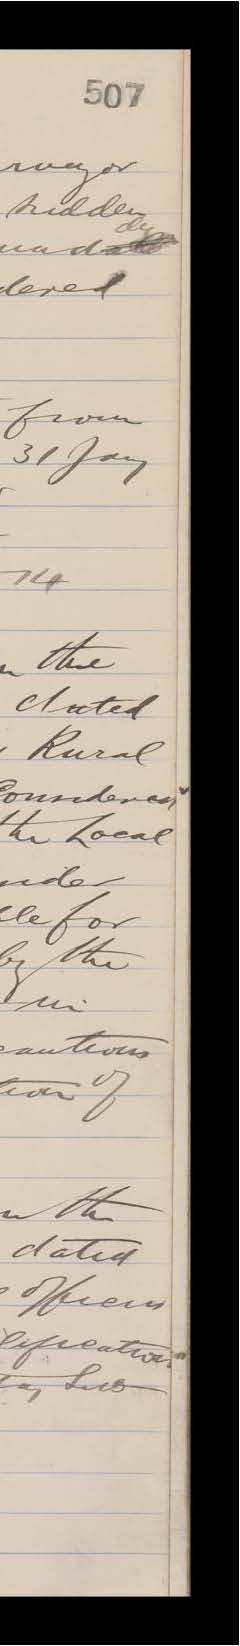 507
rveyor
hidden
dered
from
31 Jany
14
the
dated
Rural
Consideration
the Local
nder
le for
by the
in
cautions
tion of
the
dated
officers
lification